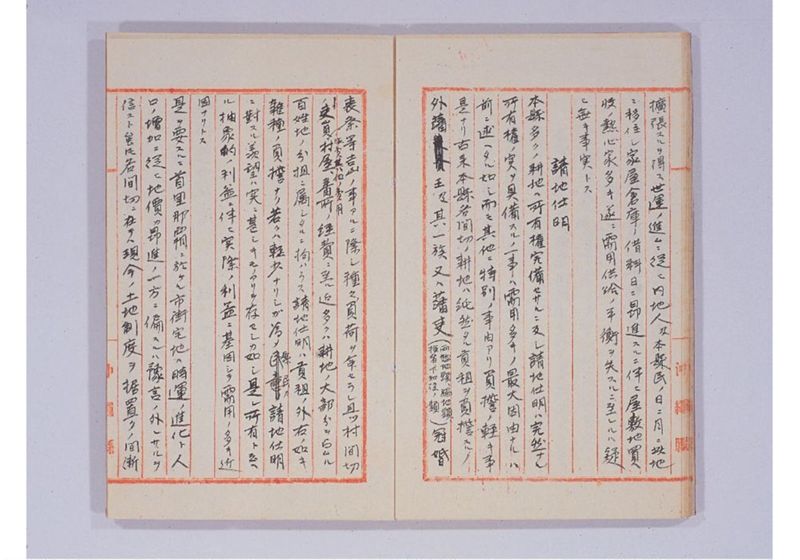 擴張スルヲ得ス世運ノ進ムニ從ヒ内地人及本縣民ノ日ニ月ニ此地
ニ移住シ家屋倉庫ノ借料日ニ昂進スルニ伴ヒ屋敷地買
收ノ熱心家多キ遂ニ需用供給ノ平衡ヲ失スルニ至レルハ疑
ヒ無キ事実トス
請地仕明
本縣多クノ耕地ハ所有權完備セサルニ反シ請地仕明ハ完然ナル
所有權ノ実ヲ具備スルノ一事ハ需用多キノ最大因由ナルハ
前ニ述ヘタル如シ而シテ其他ニ特別ノ事由アリ負擔ノ輕キ事
是ナリ古来本縣各間切ノ耕地ハ純然タル貢租ヲ負擔スルノ
外藩王及其一族又ハ藩吏 冠婚
喪祭等吉凶ノ事アルニ際シ種々負荷ヲ命セラレ且ツ村間切
吏員村屋番所ノ経費ニ至ル迄多クハ耕地ノ大部分ヲ占ムル
百姓地ノ分担ニ属シタルニ拘ハラス請地仕明ハ貢租外右ノ如キ
雑種ノ負擔ナリ若クハ軽少ナリシガ為メ 請地仕明
ニ對スル羨望ハ実ニ甚シキモノアリテ存セシカ如シ是レ所有ト云ヘ
ル抽象的ノ利益ニ伴ヒ実際利益ニ基因シテ需用ノ多キ近
因ナリトス
是ヲ要スルニ首里那覇ニ於ケル市街宅地ハ時運ノ進化ト人
口ノ増加ニ從ヒ地價ノ昂進ノ一方ニ偏スルハ豫言ノ外ニサルヲ
信スト雖氏各間切ニ在テハ現今ノ土地制度ヲ据置クノ間漸
沖繩縣
沖繩縣